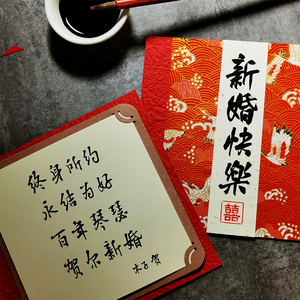 新婚快樂
囍
终身所约
永结为好
百年琴瑟
贺尔新婚
木子 贺